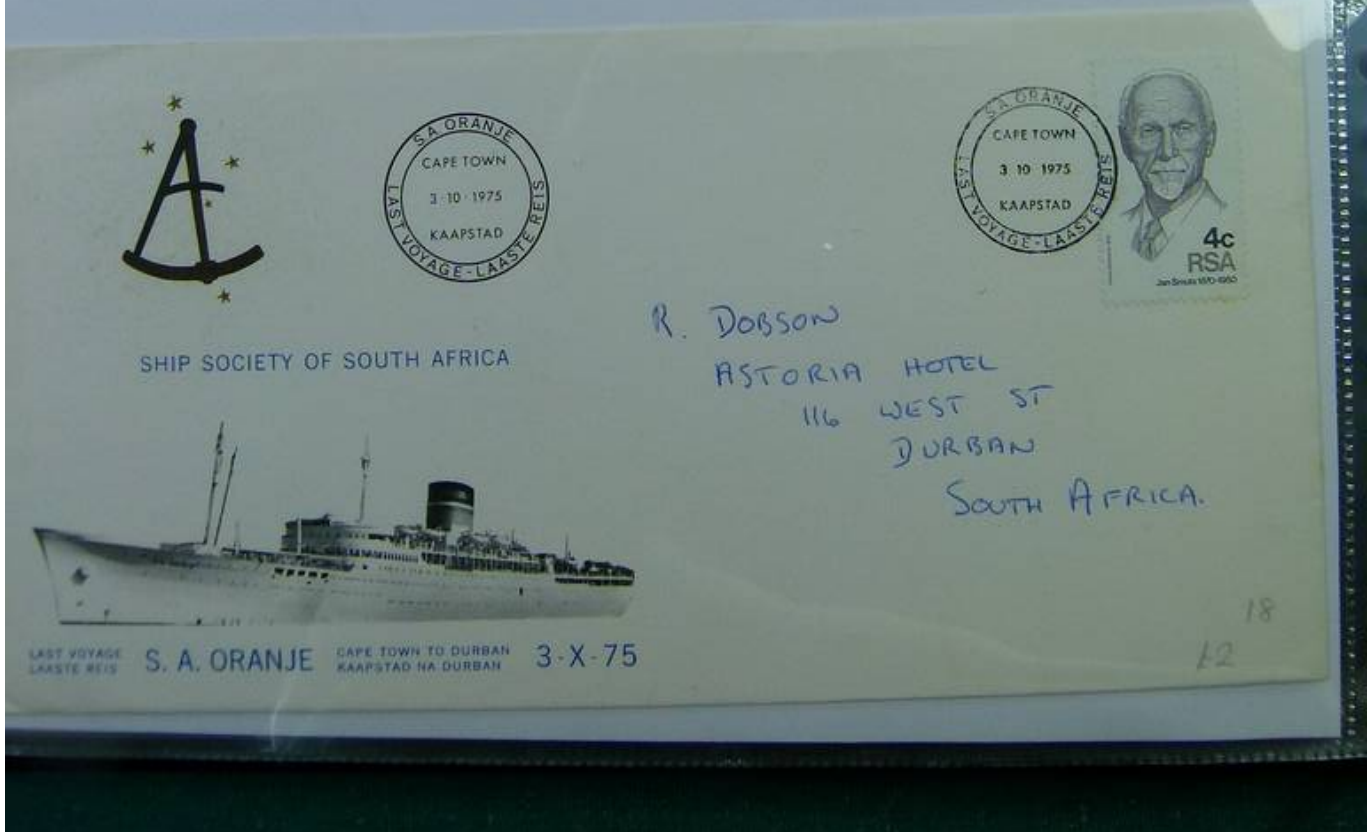 S A ORANJE
CAPE TOWN
3·10·1975
KAAPSTAD
LAST VOYAGE - LAASTE REIS
S A ORANJE
CAPE TOWN
3 10 1975
KAAPSTAD
LAST VOYAGE - LAASTE REIS
4c
RSA
Jan Smuts 1870-1950
R. DOBSON
ASTORIA HOTEL
116 WEST ST
DURBAN
SOUTH AFRICA.
SHIP SOCIETY OF SOUTH AFRICA
LAST VOYAGE
LAASTE REIS
S. A. ORANJE
CAPE TOWN TO DURBAN
KAAPSTAD NA DURBAN
3-X-75
18
£2